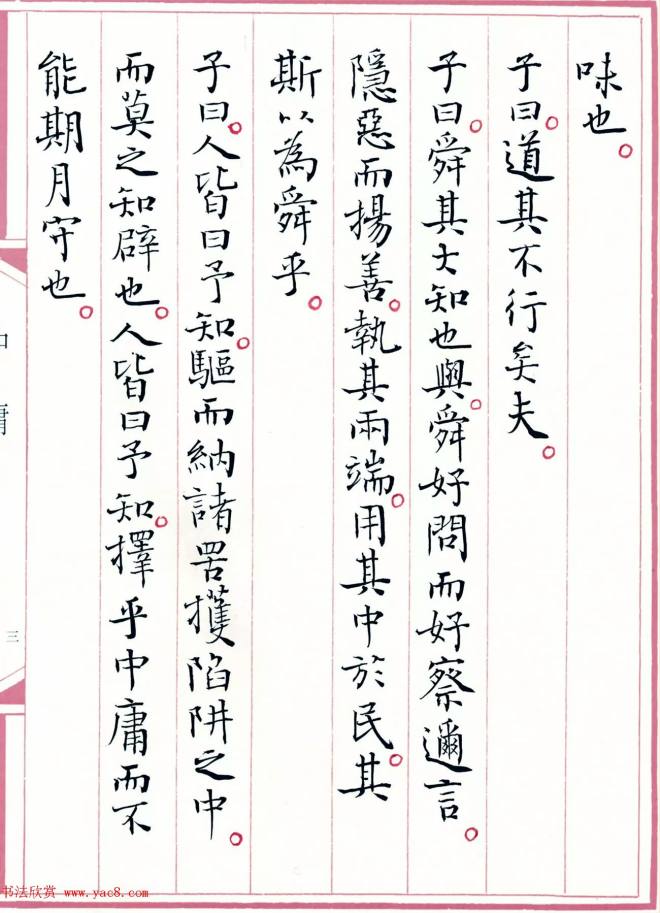 味也。
子曰。道其不行矣夫。
子曰。舜其大知也與。舜好問而好察邇言。
隱惡而揚善。執其兩端。用其中於民。其
斯以為舜乎。
子曰。人皆曰予知。驅而納諸罟擭陷阱之中。
而莫之知辟也。人皆曰予知。擇乎中庸而不
能期月守也。
中庸
三
书法欣赏 www.yac8.com